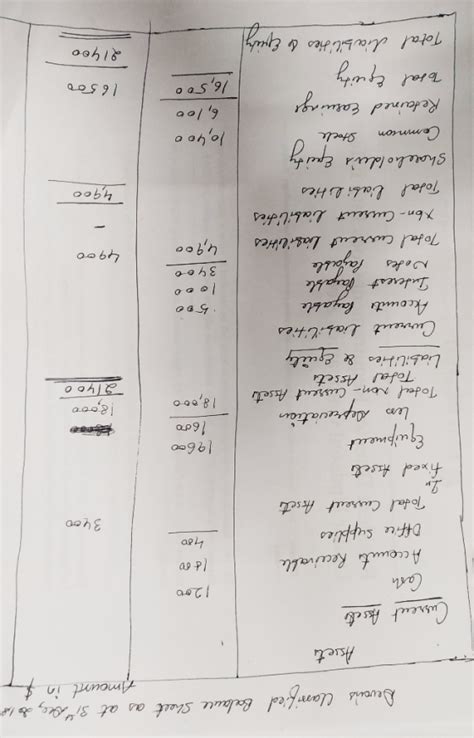 Devon's Classified Balance Sheet as at 31st Dec, 2018
Amount in $
Assets
Current Assets
Cash 1200
Accounts Receivable 1800
Office Supplies 400
Total Current Assets 3400
Fixed Assets
Equipment 19600
Less Depreciation 1600
Total Non-Current Assets 18,000 18,000
Total Assets 21400
Liabilities & Equity
Current Liabilities
Accounts Payable 500
Interest Payable 1000
Notes Payable 3400
Total Current Liabilities 4,900 4900
Non-Current Liabilities -
Total Liabilities 4,900
Shareholder's Equity
Common Stock 10,400
Retained Earnings 6,100
Total Equity 16,500 16500
Total Liabilities & Equity 21400